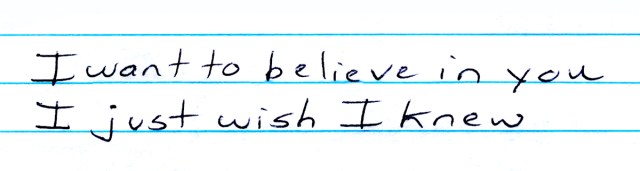 I want to believe in you
I just wish I knew